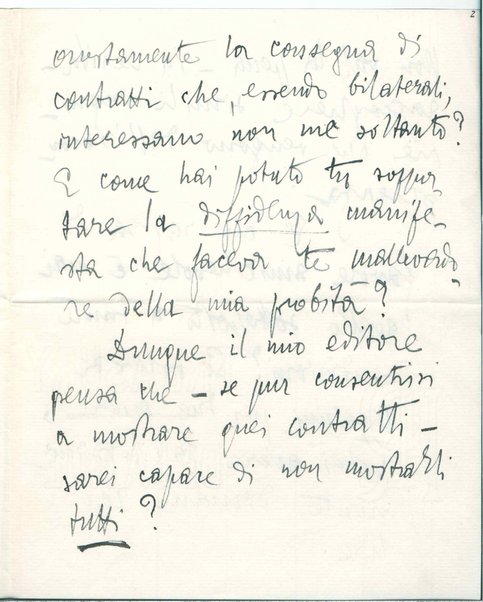 2
onestamente la consegna di
contratti che, essendo bilaterali,
interessano non me soltanto?
E come hai potuto tu soppor
tare la diffidenza manife-
sta che faceva te mallevado-
re della mia probità?
Dunque il mio editore
pensa che – se pur consentissi
a mostrare quei contratti –
sarei capace di non mostrarli
tutti?